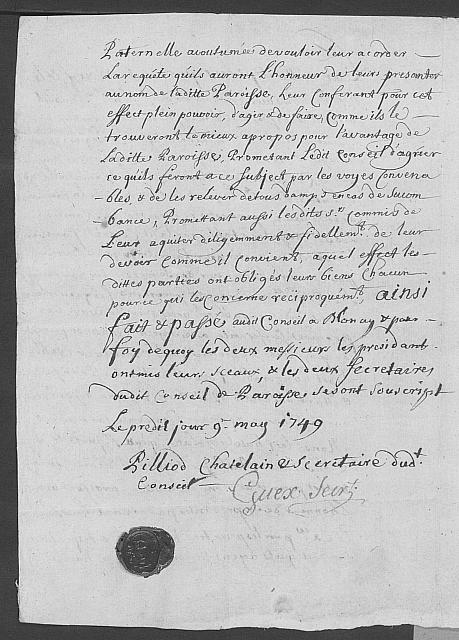 Paternelle acoutumée de vouloir leur acorder
La requête quils auront L'honneur de leurs presenter
au nom de laditte Paroisse, Leur Conferant pour cet
effect plein pouvoir, d'agir & de faire, comme ils le
trouveront le mieux apropos pour lavantage de
Laditte Paroisse, Promettant Ledit Conseil d'agréer
ce quils feront a ce Subject par les voyes Convena
bles, & de les relever de tous damps en cas de Sucom
bance, Promettant aussi lesdits Srs commis de
Leur aquiter diligemment & fidellemt. de leur
devoir comme il convient, a quel effect les
dittes parties ont obligés leurs biens chacun
pour ce qui les concerne reciproquemt. ainsi
fait & passé audit Conseil a Blonay & par
foy dequoy les deux messieurs les presidants
ont mis leurs sceaux, & les deux Secretaires
dudit Conseil de Paroisse se sont souscript
Le predit jour 9e may 1749
Pilliod Chatelain & Secretaire dudt.
Conseil
Guex Secrt.